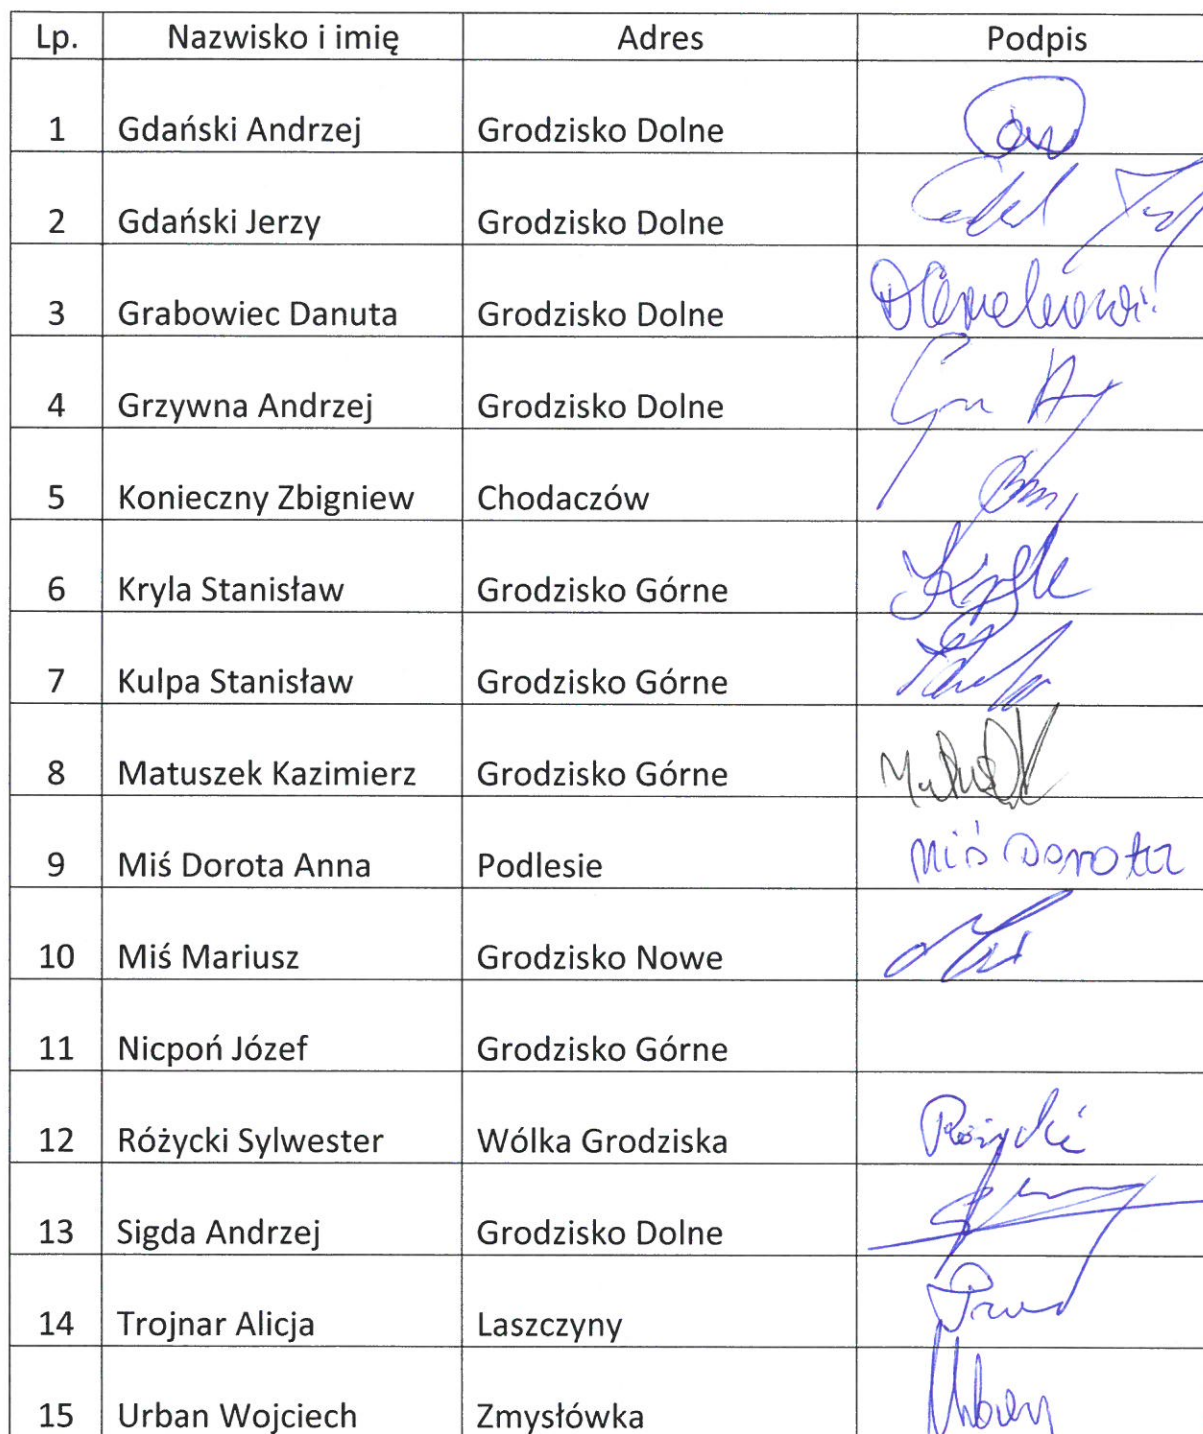 Lp. Nazwisko i imię Adres Podpis
1 Gdański Andrzej Grodzisko Dolne
2 Gdański Jerzy Grodzisko Dolne
3 Grabowiec Danuta Grodzisko Dolne
4 Grzywna Andrzej Grodzisko Dolne
5 Konieczny Zbigniew Chodaczów
6 Kryla Stanisław Grodzisko Górne
7 Kulpa Stanisław Grodzisko Górne
8 Matuszek Kazimierz Grodzisko Górne
9 Miś Dorota Anna Podlesie Miś Dorota
10 Miś Mariusz Grodzisko Nowe
11 Nicpoń Józef Grodzisko Górne
12 Różycki Sylwester Wólka Grodziska Różycki
13 Sigda Andrzej Grodzisko Dolne
14 Trojnar Alicja Laszczyny
15 Urban Wojciech Zmysłówka Urban